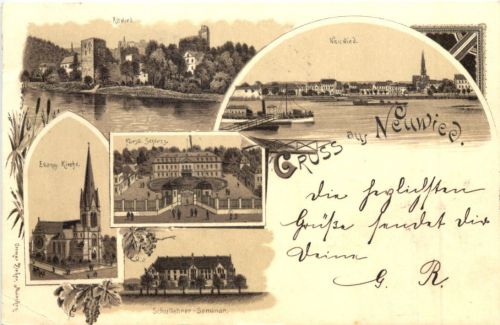 Altwied.
Neuwied.
GRUSS aus NEUWIED.
Evang. Kirche.
Fürstl. Schloss.
Schullehrer-Seminar.
Die herzlichsten
Grüße sendet Dir
Deine
G. R.